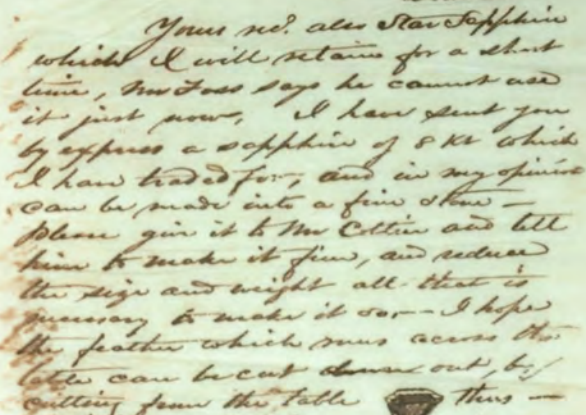 Yours recd. also Star Sapphire
which I will retain for a short
time, Mr Foss says he cannot use
it just now. I have sent you
by express a sapphire of 8 Kt which
I have traded for, and in my opinion
can be made into a fine stone –
please give it to Mr Cottier and tell
him to make it fine, and reduce
the size and weight all that is
necessary to make it so, – I hope
the feather which runs across the
table can be cut out, by
cutting from the table thus –